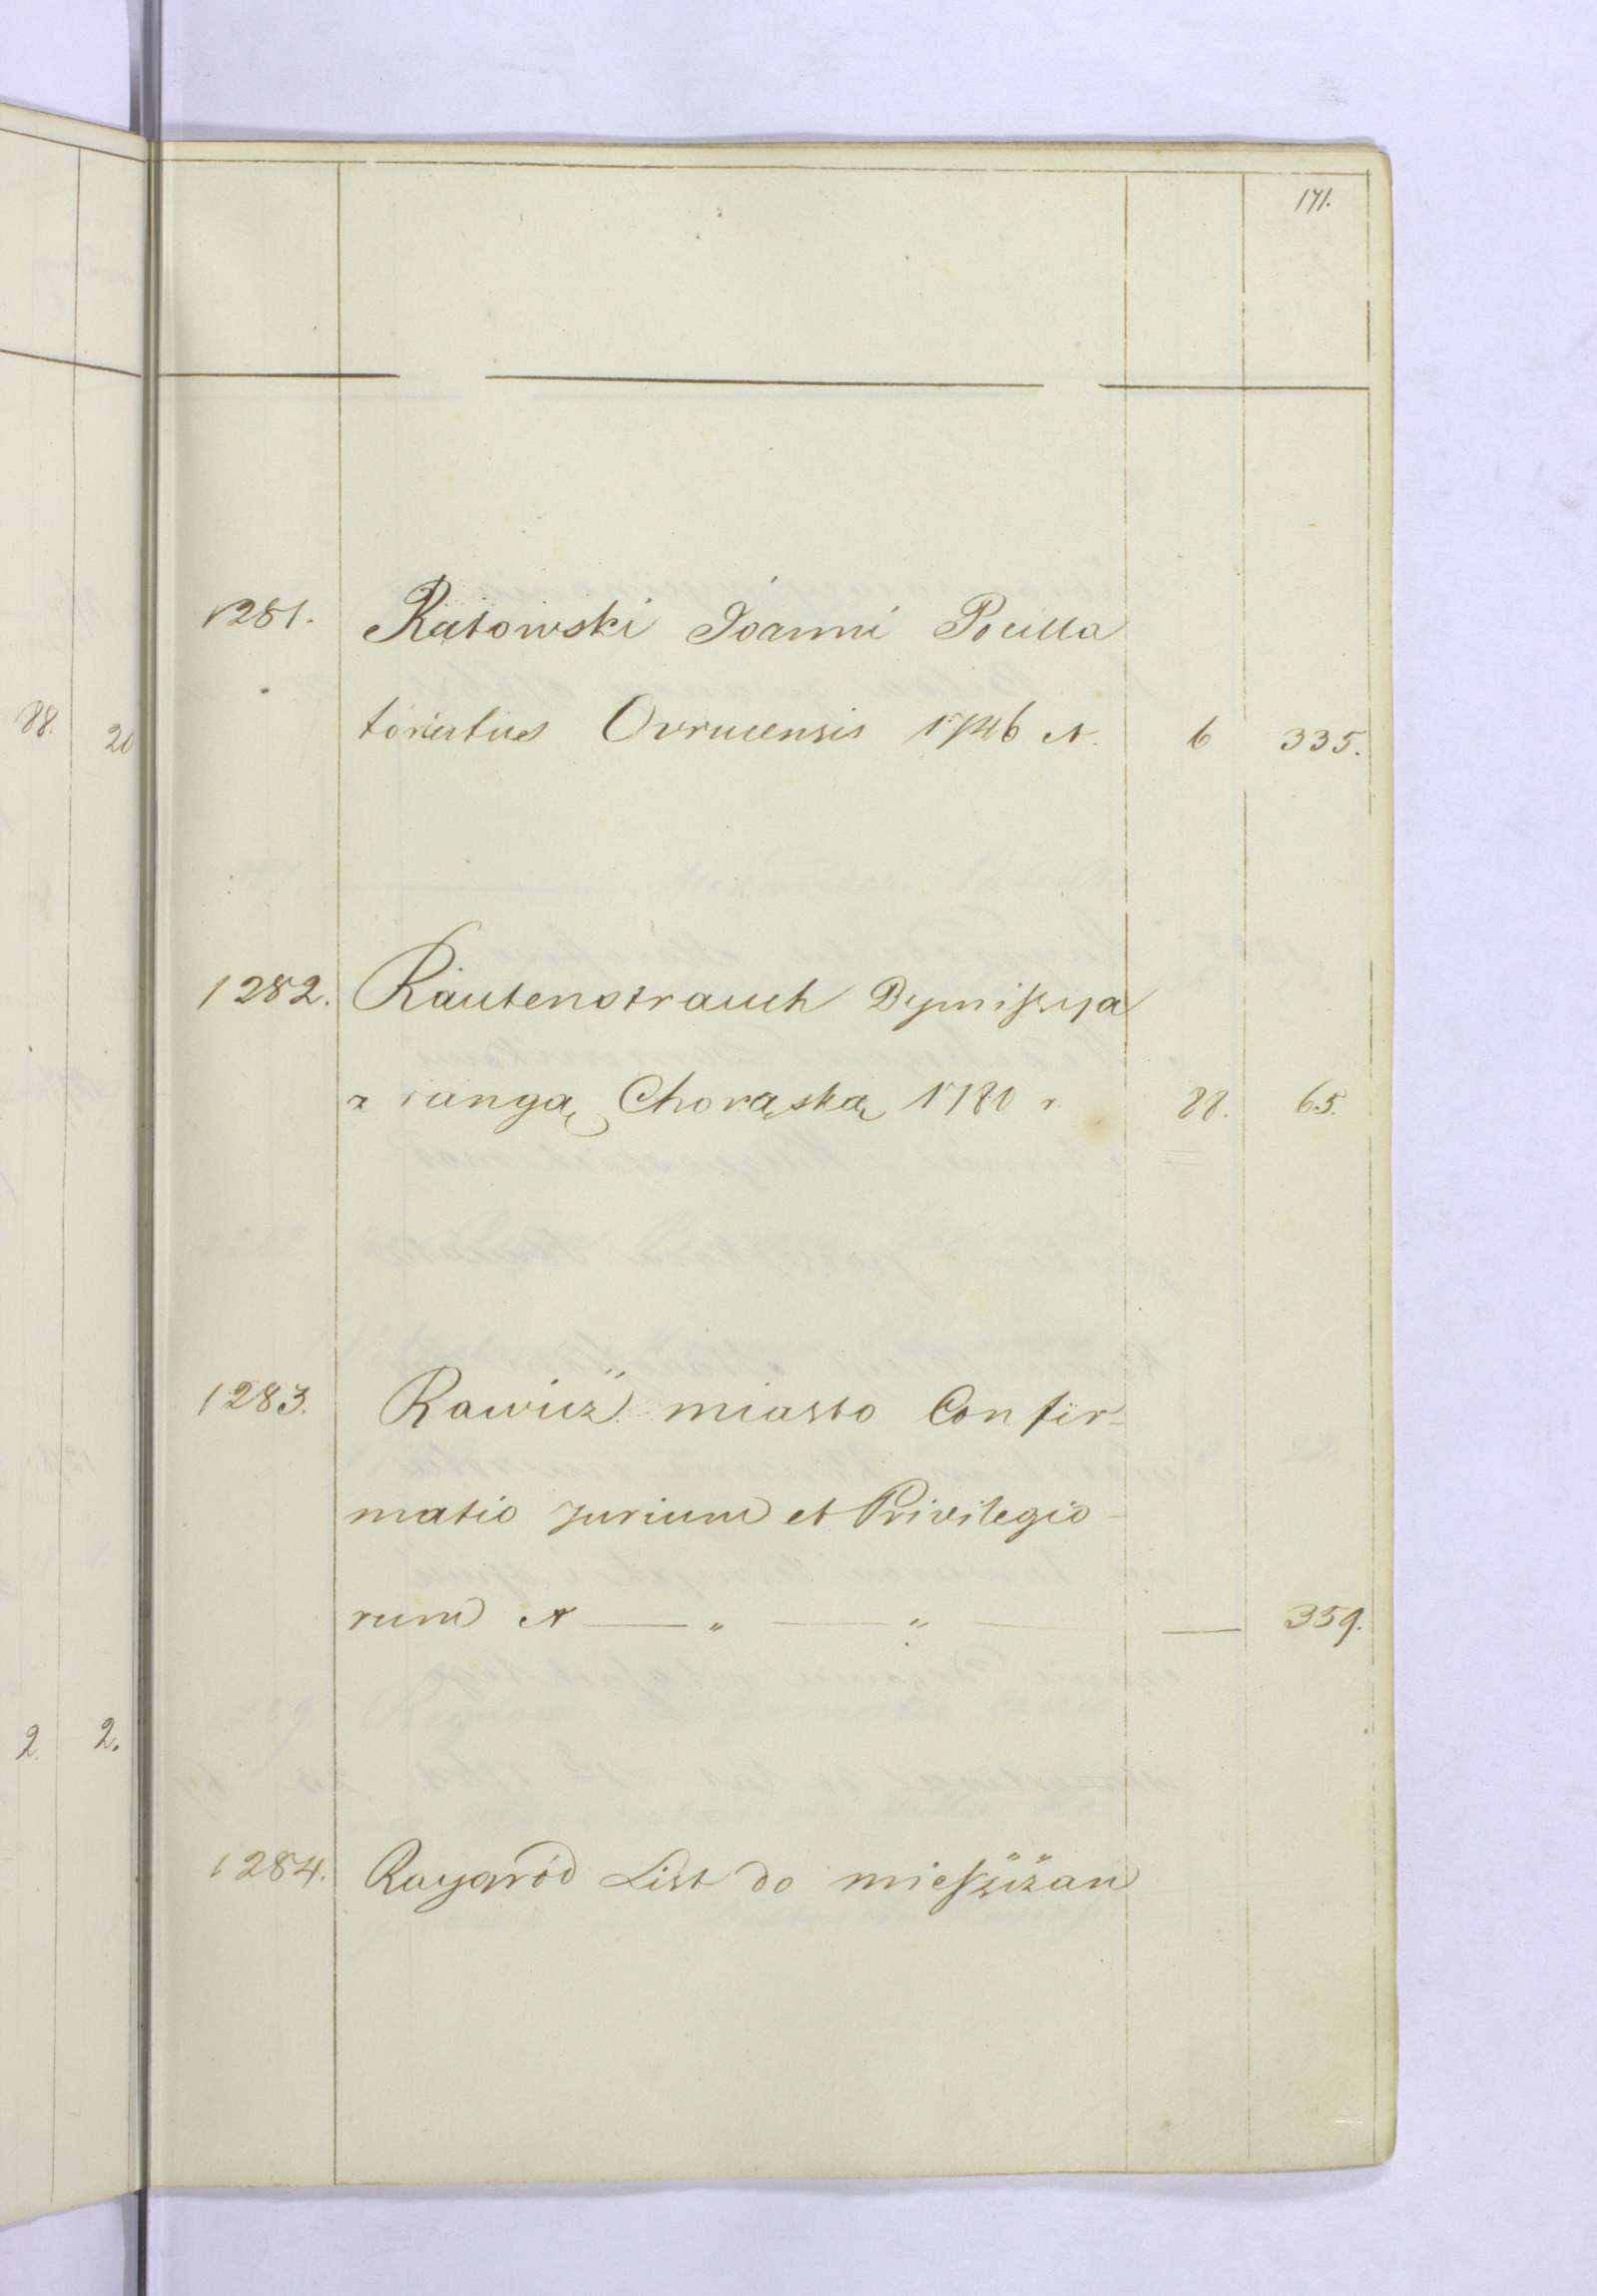 171.
1281. Ratowski Joanni Pocilla
toriatus Ovrucensis 1746 A. 6 335.
88. 20
1282. Rautenstrauch Dymissya
z rangą Chorąską 1780 r. 88. 65.
1283. Rawicz miasto Confir-
matio Jurium et Privilegio-
rum A — „ — „ — — 359.
2. 2.
1284. Raygród List do mieszczan